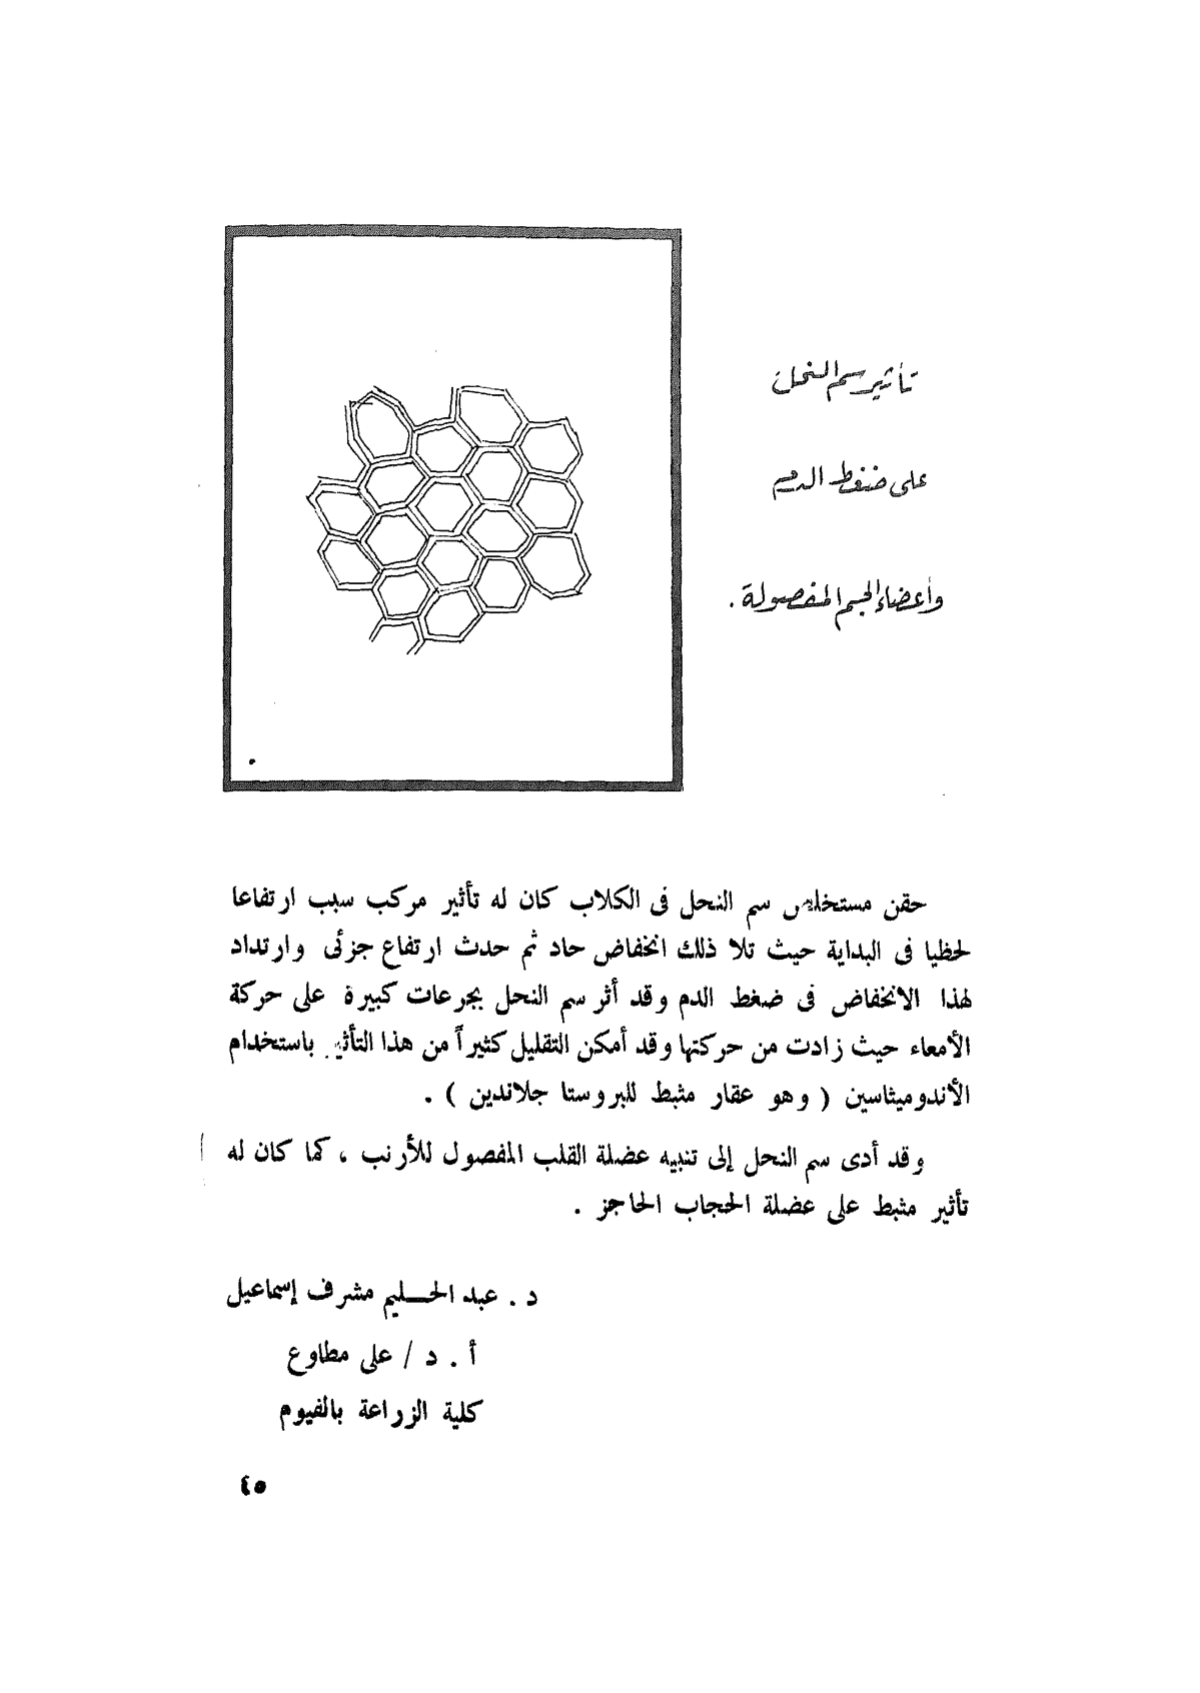 تأثير سم النحل
على ضغط الدم
وأعضاء الجسم المفصولة .
حقن مستخلص سم النحل فى الكلاب كان له تأثير مركب سبب ارتفاعا
لحظيا فى البداية حيث تلا ذلك انخفاض حاد ثم حدث ارتفاع جزئى وارتداد
لهذا الانخفاض فى ضغط الدم وقد أثر سم النحل بجرعات كبيرة على حركة
الأمعاء حيث زادت من حركتها وقد أمكن التقليل كثيراً من هذا التأثير باستخدام
الأندوميثاسين ( وهو عقار مثبط للبروستا جلاندين ) .
وقد أدى سم النحل إلى تنبيه عضلة القلب المفصول للأرنب ، كما كان له
تأثير مثبط على عضلة الحجاب الحاجز .
د . عبد الحـــليم مشرف إسماعيل
أ . د / على مطاوع
كلية الزراعة بالفيوم
٤٥